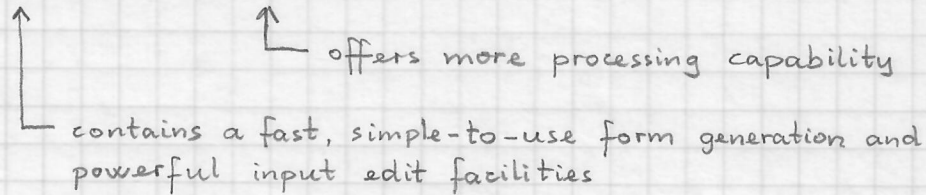 offers more processing capability
contains a fast, simple-to-use form generation and
powerful input edit facilities